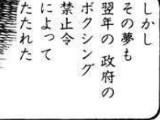 しかし
その夢も
翌年の 政府の
ボクシング
禁止令
によって
たたれた